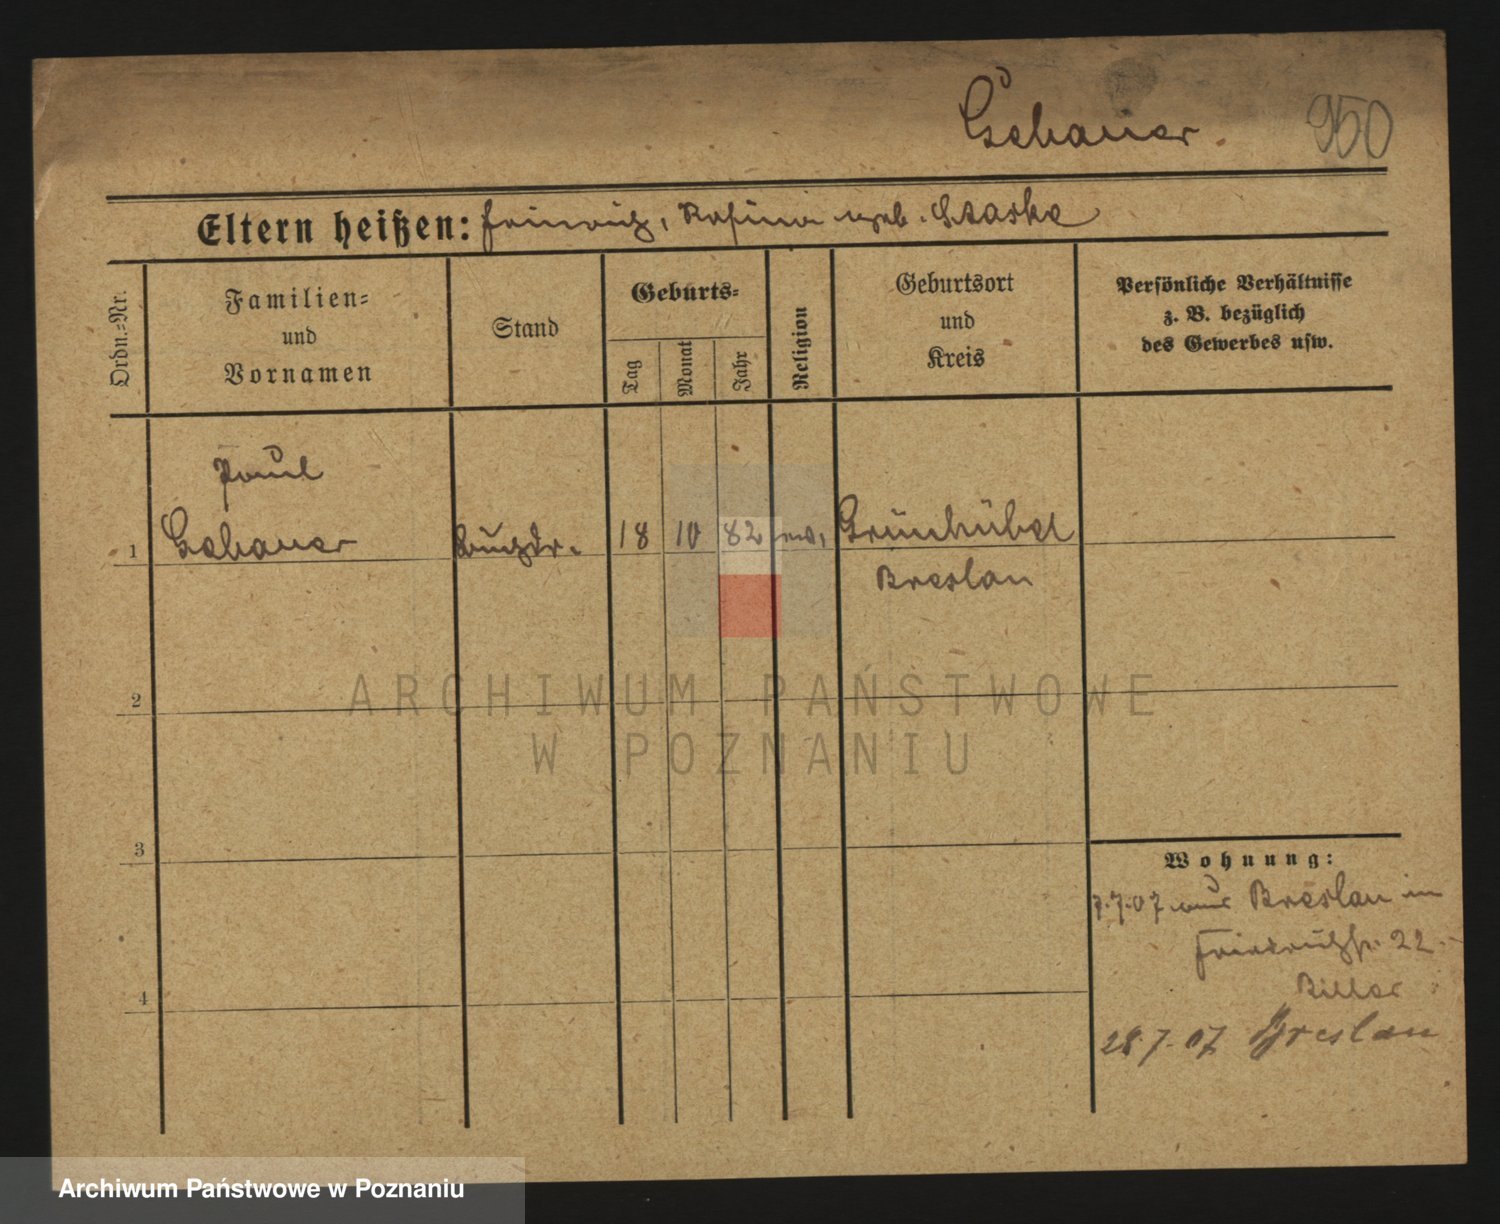 Gebauer.
950
Eltern heißen: Heinrich, Rosina geb. Staske
Ordn.-Nr.
Familien-
und
Vornamen
Stand
Geburts-
Tag
Monat
Jahr
Religion
Geburtsort
und
Kreis
Persönliche Verhältnisse
z. B. bezüglich
des Gewerbes usw.
Paul
1 Gebauer Buchdr. 18 10 82 ev. Grünhübel
Breslau
2
3
4
Wohnung:
7.7.07 aus Breslau in
Friedrichstr. 22.
28.7.07 Breslau
ARCHIWUM PAŃSTWOWE
W POZNANIU
Archiwum Państwowe w Poznaniu